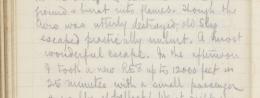 ground & burst into flames. Though the
was utterly destroyed, old Sky
escaped practically unhurt. A most
wonderful escape. In the afternoon
I took a new RE8 up to 12000 feet in
25 minutes with a small passenger